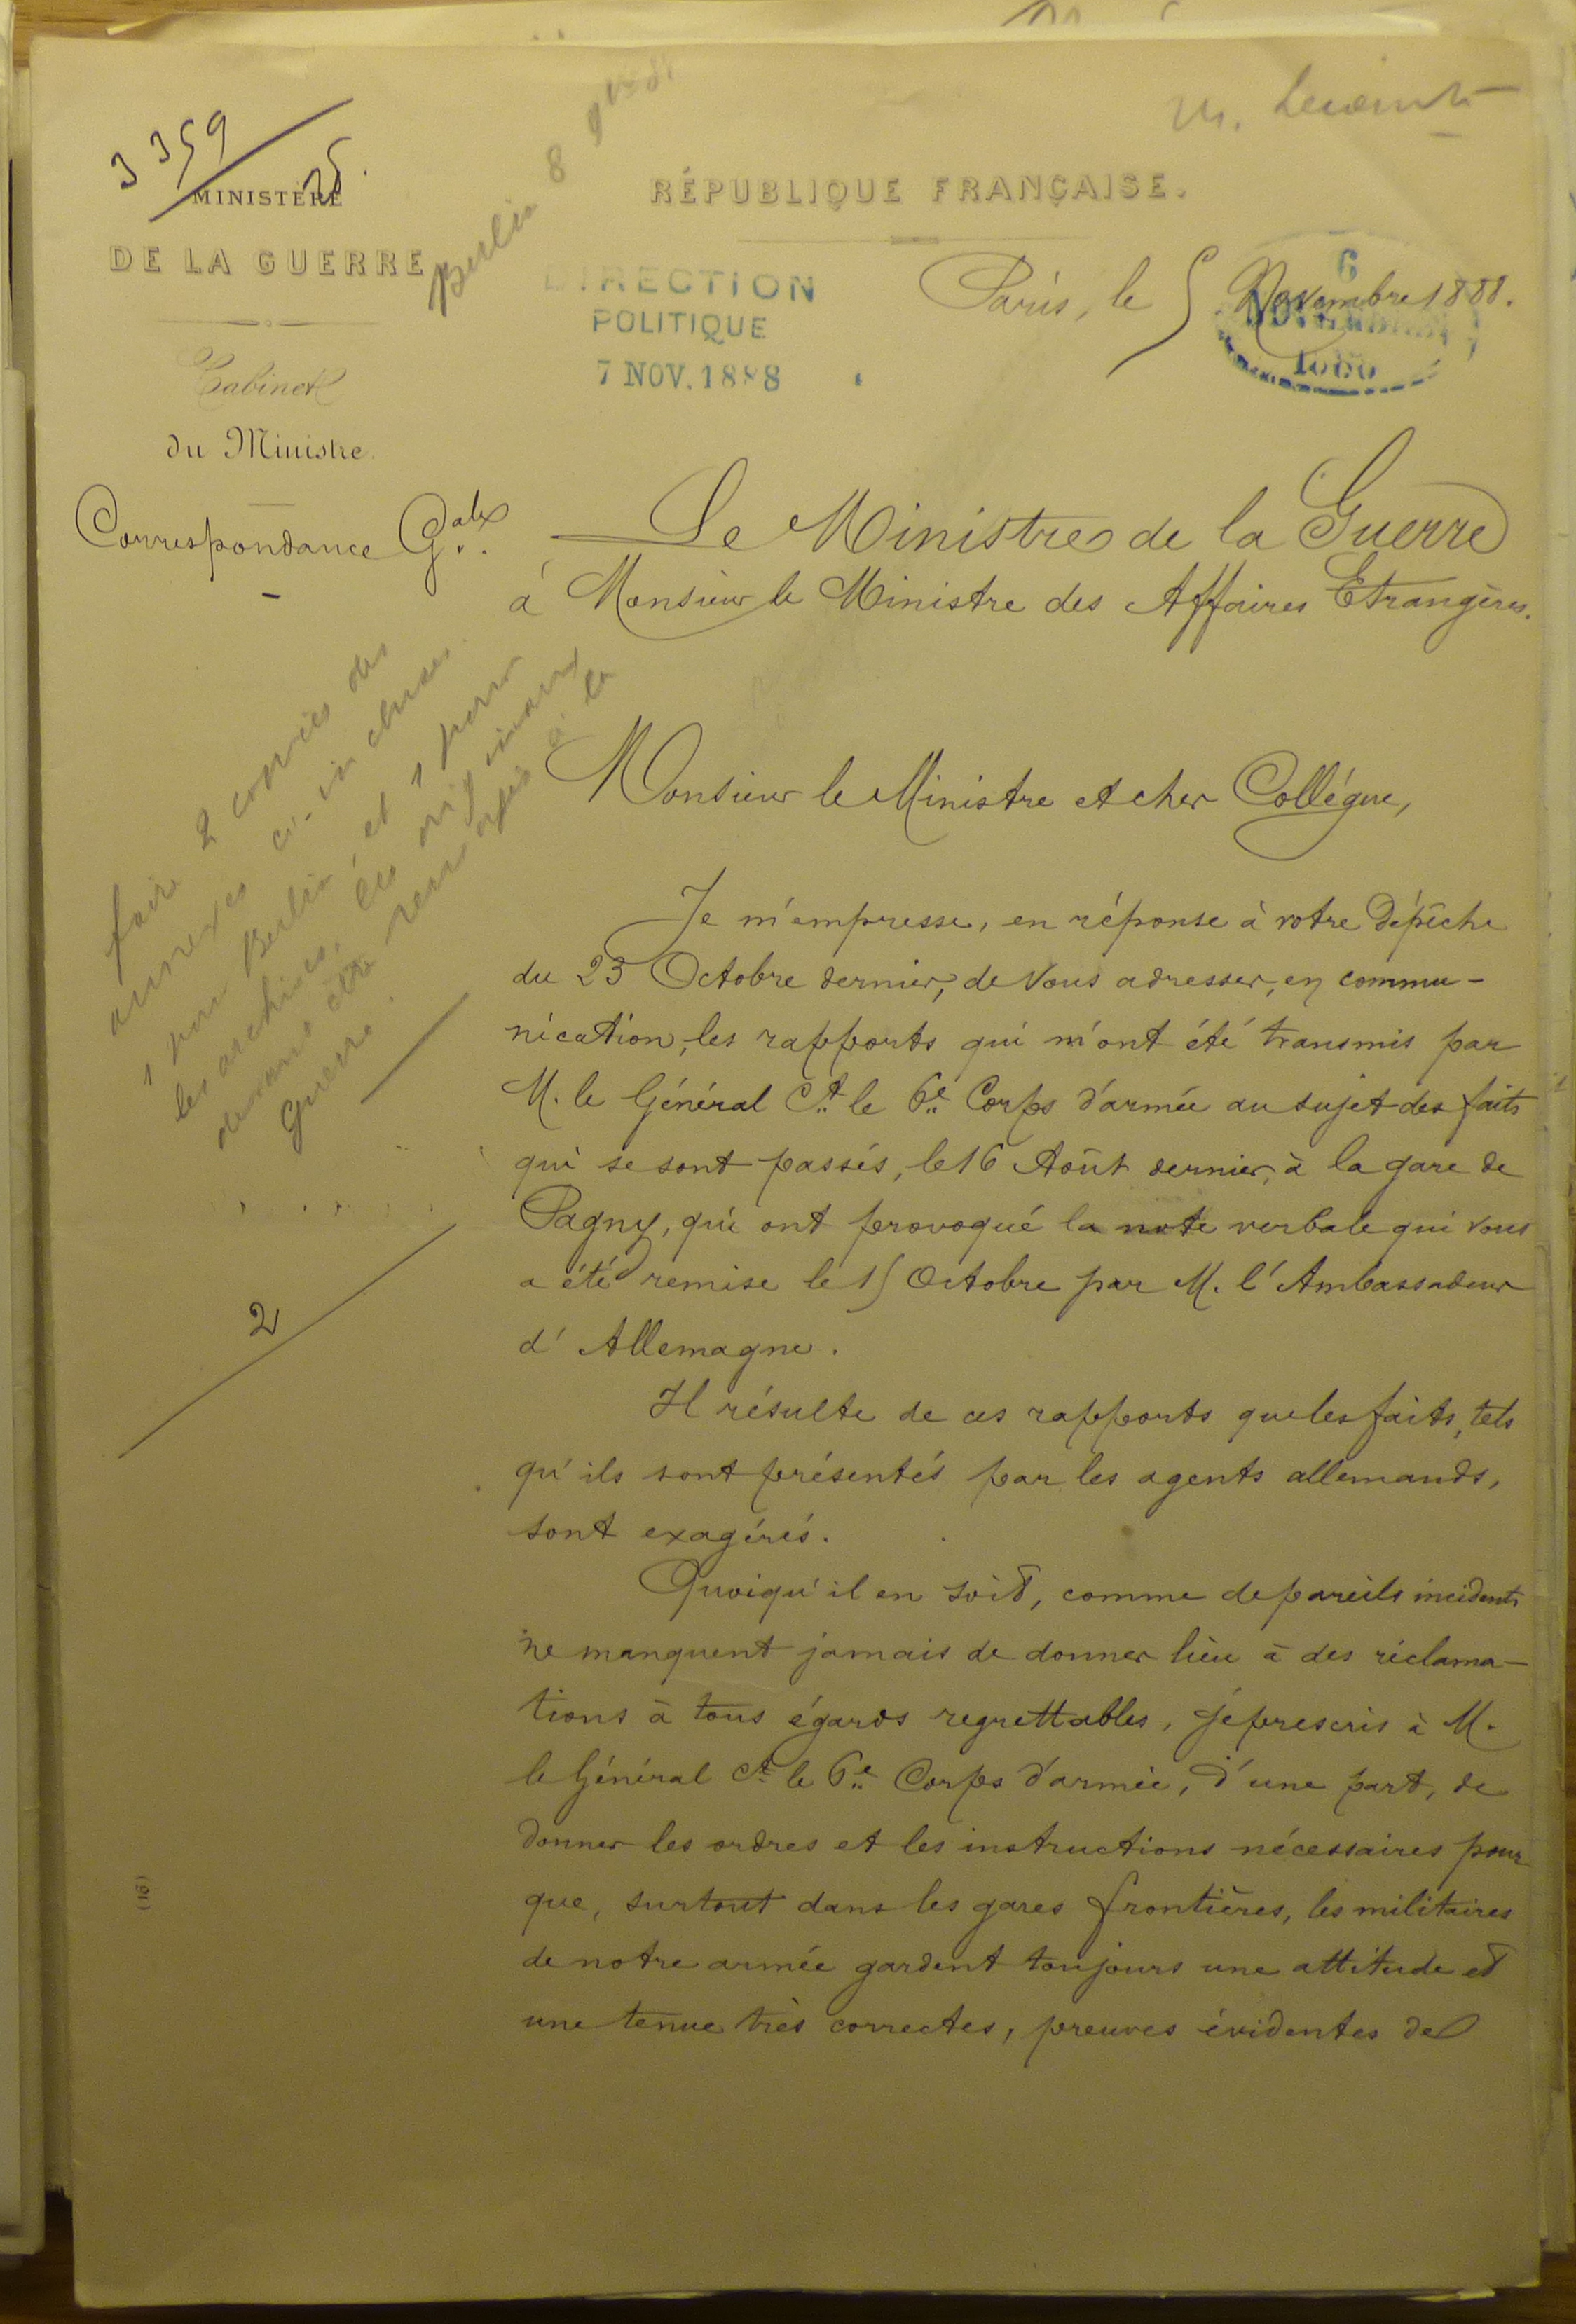 3359
25.
MINISTÈRE
DE LA GUERRE
Cabinet
du Ministre.
Correspondance Gale
Berlin 8 9bre 88
RÉPUBLIQUE FRANÇAISE.
DIRECTION
POLITIQUE
7 NOV. 1888
Paris, le 5 Novembre 1888.
6
Le Ministre de la Guerre
à Monsieur le Ministre des Affaires Etrangères.
faire 2 copies des
annexes ci-incluses
1 pour Berlin et 1 pour
les archives, les originaux
devant être renvoyés à la
Guerre.
2
Monsieur le Ministre et cher Collégue,
Je m'empresse, en réponse à votre Dépêche
du 23 Octobre dernier, de Vous adresser, en commu-
nication, les rapports qui m'ont été transmis par
M. le Général Ct le 6e Corps d'armée au sujet des faits
qui se sont passés, le 16 Août dernier, à la gare de
Pagny, qui ont provoqué la note verbale qui vous
a été remise le 15 Octobre par M. l'Ambassadeur
d'Allemagne.
Il résulte de ces rapports que les faits, tels
qu'ils sont présentés par les agents allemands,
sont exagérés.
Quoiqu'il en soit, comme de pareils incidents
ne manquent jamais de donner lieu à des réclama-
tions à tous égards regrettables, je prescris à M.
le Général Ct le 6e Corps d'armée, d'une part, de
donner les ordres et les instructions nécessaires pour
que, surtout dans les gares frontières, les militaires
de notre armée gardent toujours une attitude et
une tenue très correctes, preuves évidentes de
(16)